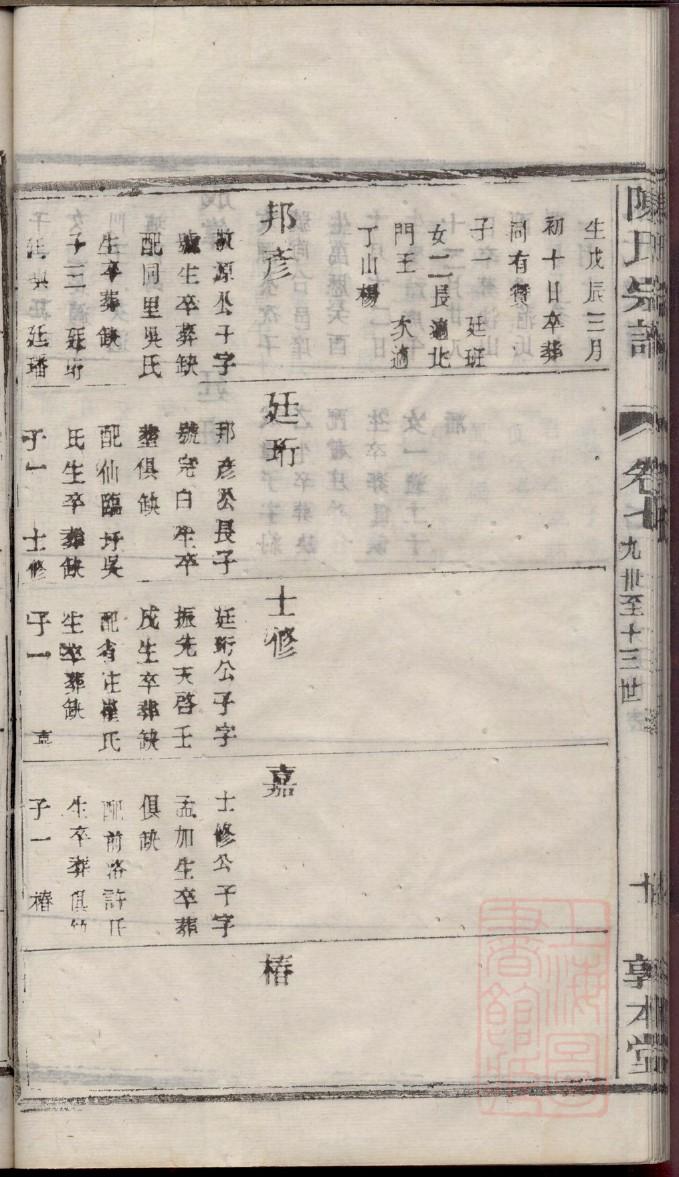 陳氏宗譜
卷七
九世至十三世
十
敦本堂
生戊辰三月
初十日卒葬
同有賓
子一　廷班
女二長適北
門王　次適
丁山楊
邦彥
敬源公子字
號生卒葬缺
配同里吳氏
生卒葬缺
子三　廷珩
廷璠
廷珩
邦彥公長子
號完白生卒
葬俱缺
配仙臨圩吳
氏生卒葬缺
子一　士修
士修
廷珩公子字
振先天啓壬
戌生卒葬缺
配省庄崔氏
生卒葬缺
子一　嘉
嘉
士修公子字
孟加生卒葬
俱缺
配前洛許氏
生卒葬俱缺
子一　椿
椿
上海圖書館藏